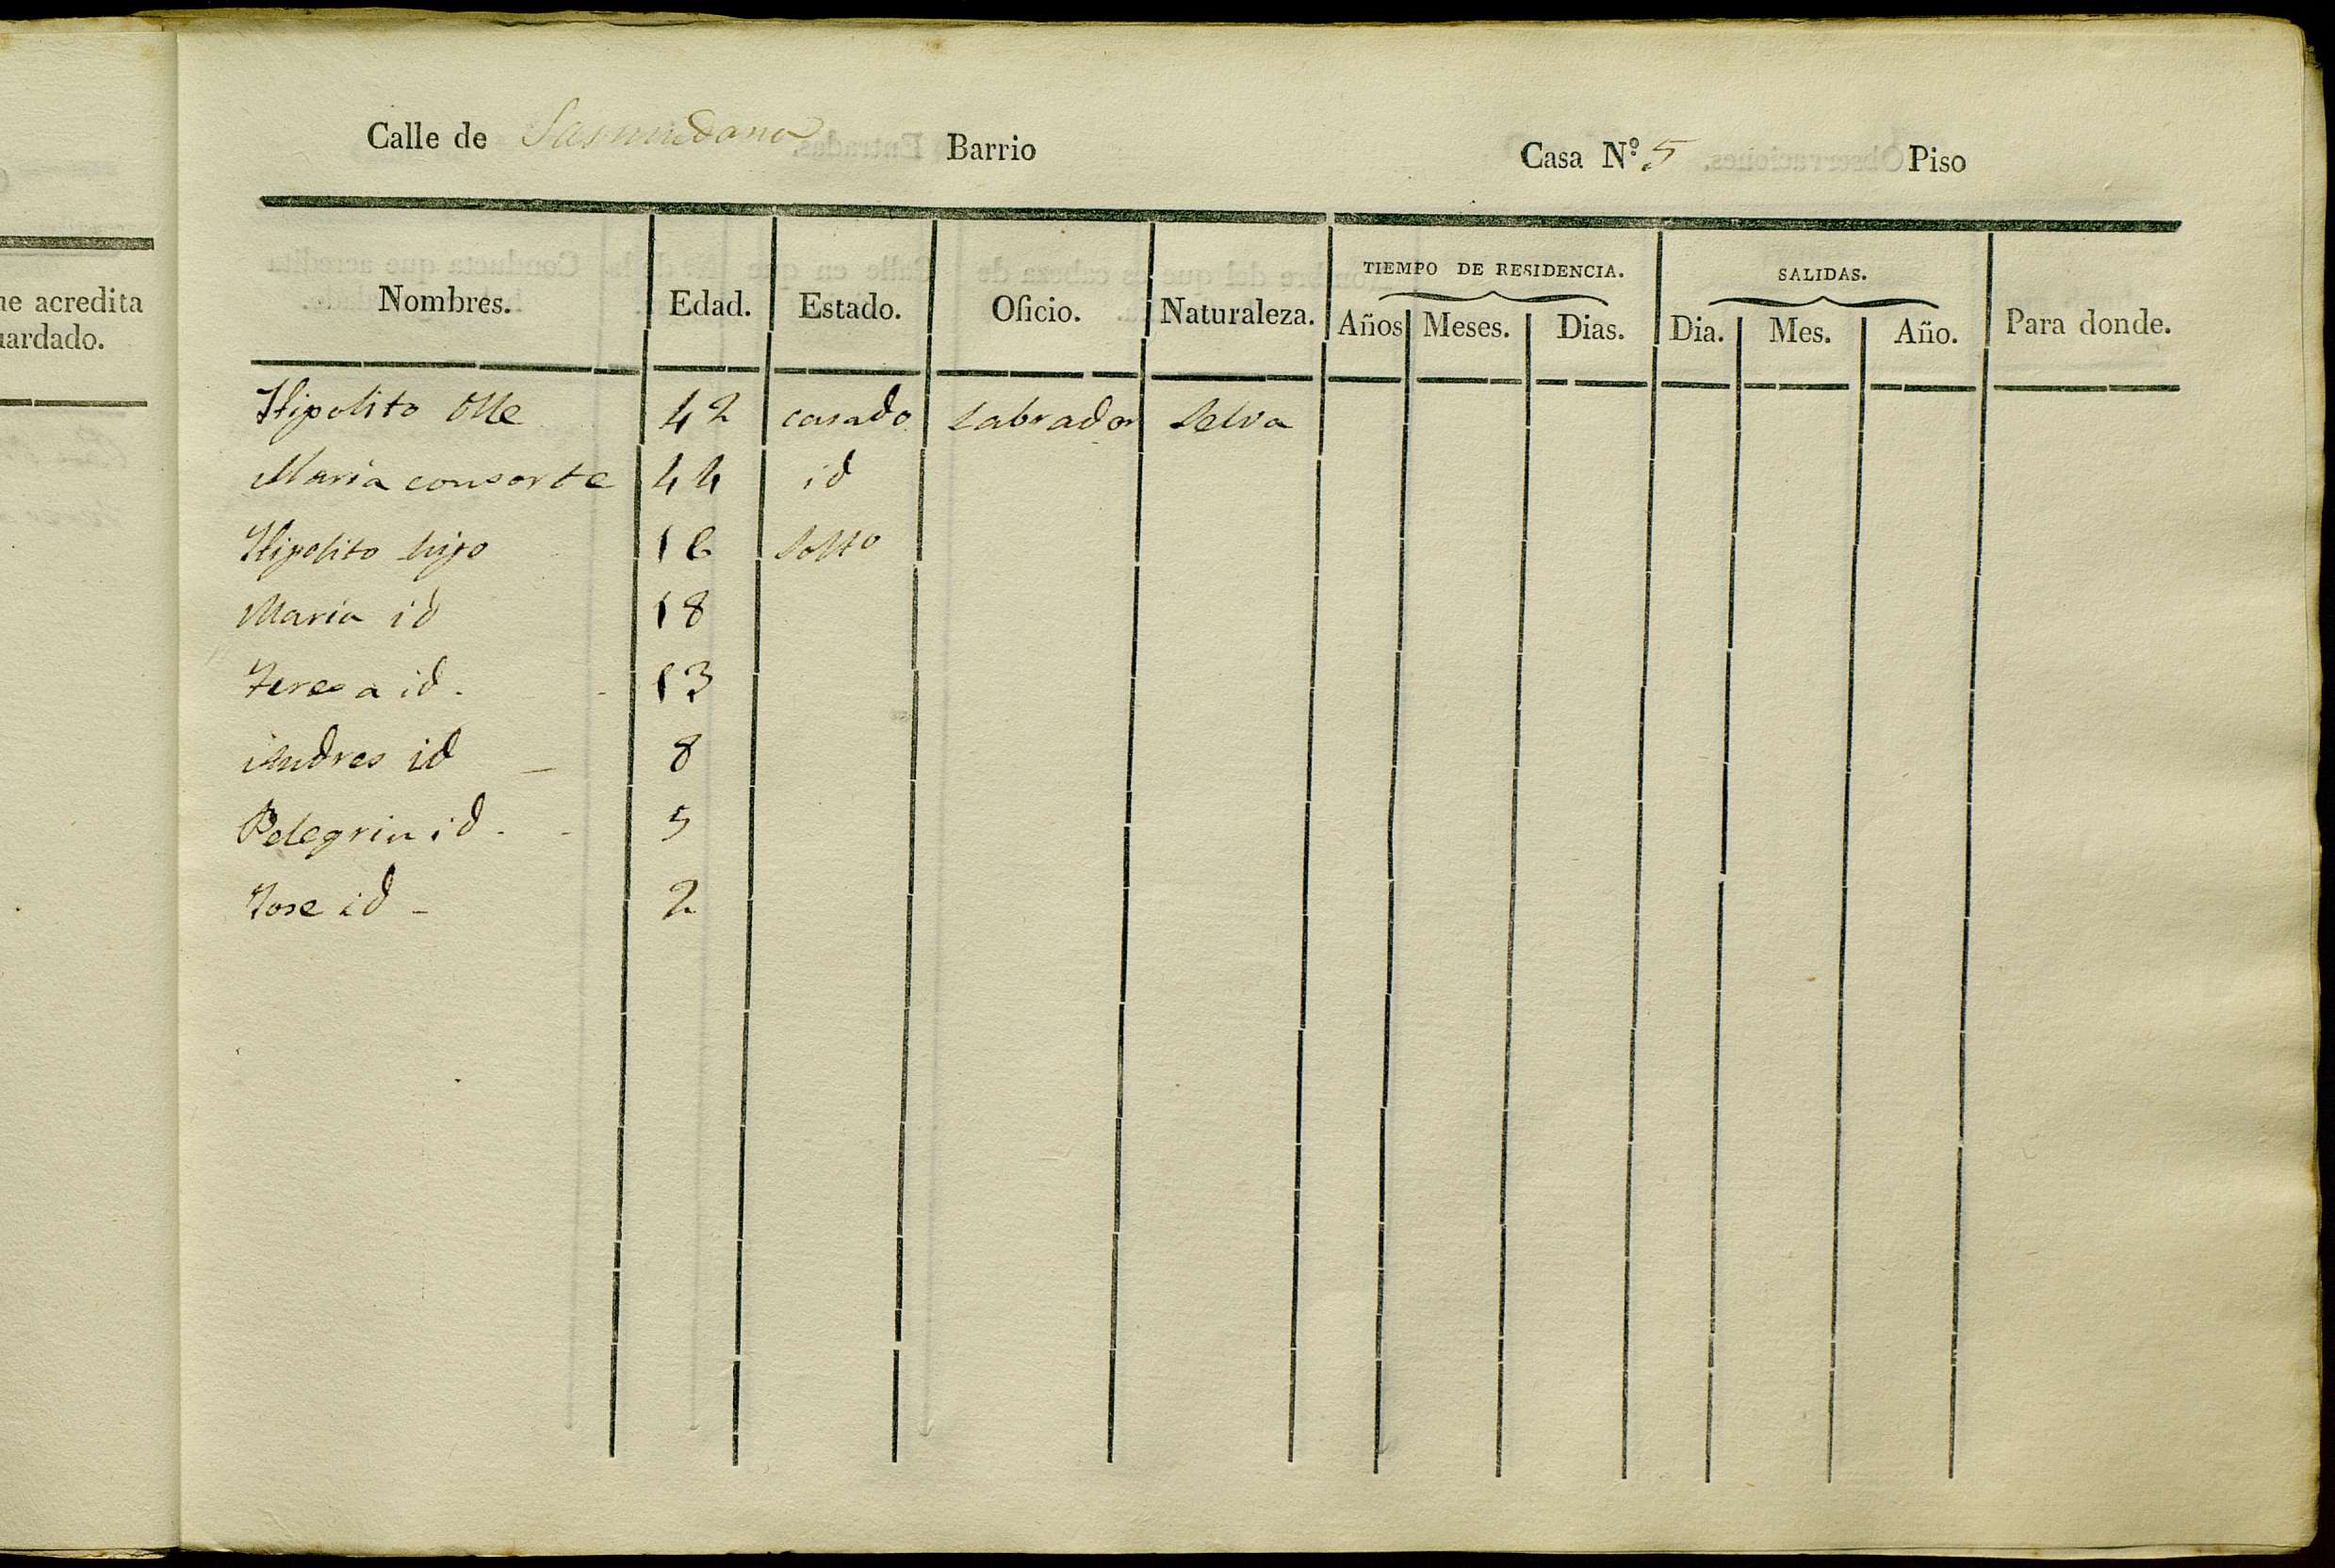 Calle de Barrio Casa Nº 5 Piso
ue acredita
uardado.
TIEMPO DE RESIDENCIA. SALIDAS.
Nombres. Edad. Estado. Oficio. Naturaleza. Años Meses. Dias. Dia. Mes. Año. Para donde.
Hipolito Olle 42 casado Labrador Selva
Maria consorte 44 id
Hipolito hijo 16 soltro
Maria id 18
Teresa id. 13
Andres id 8
Pelegrin id. 5
Jose id 2